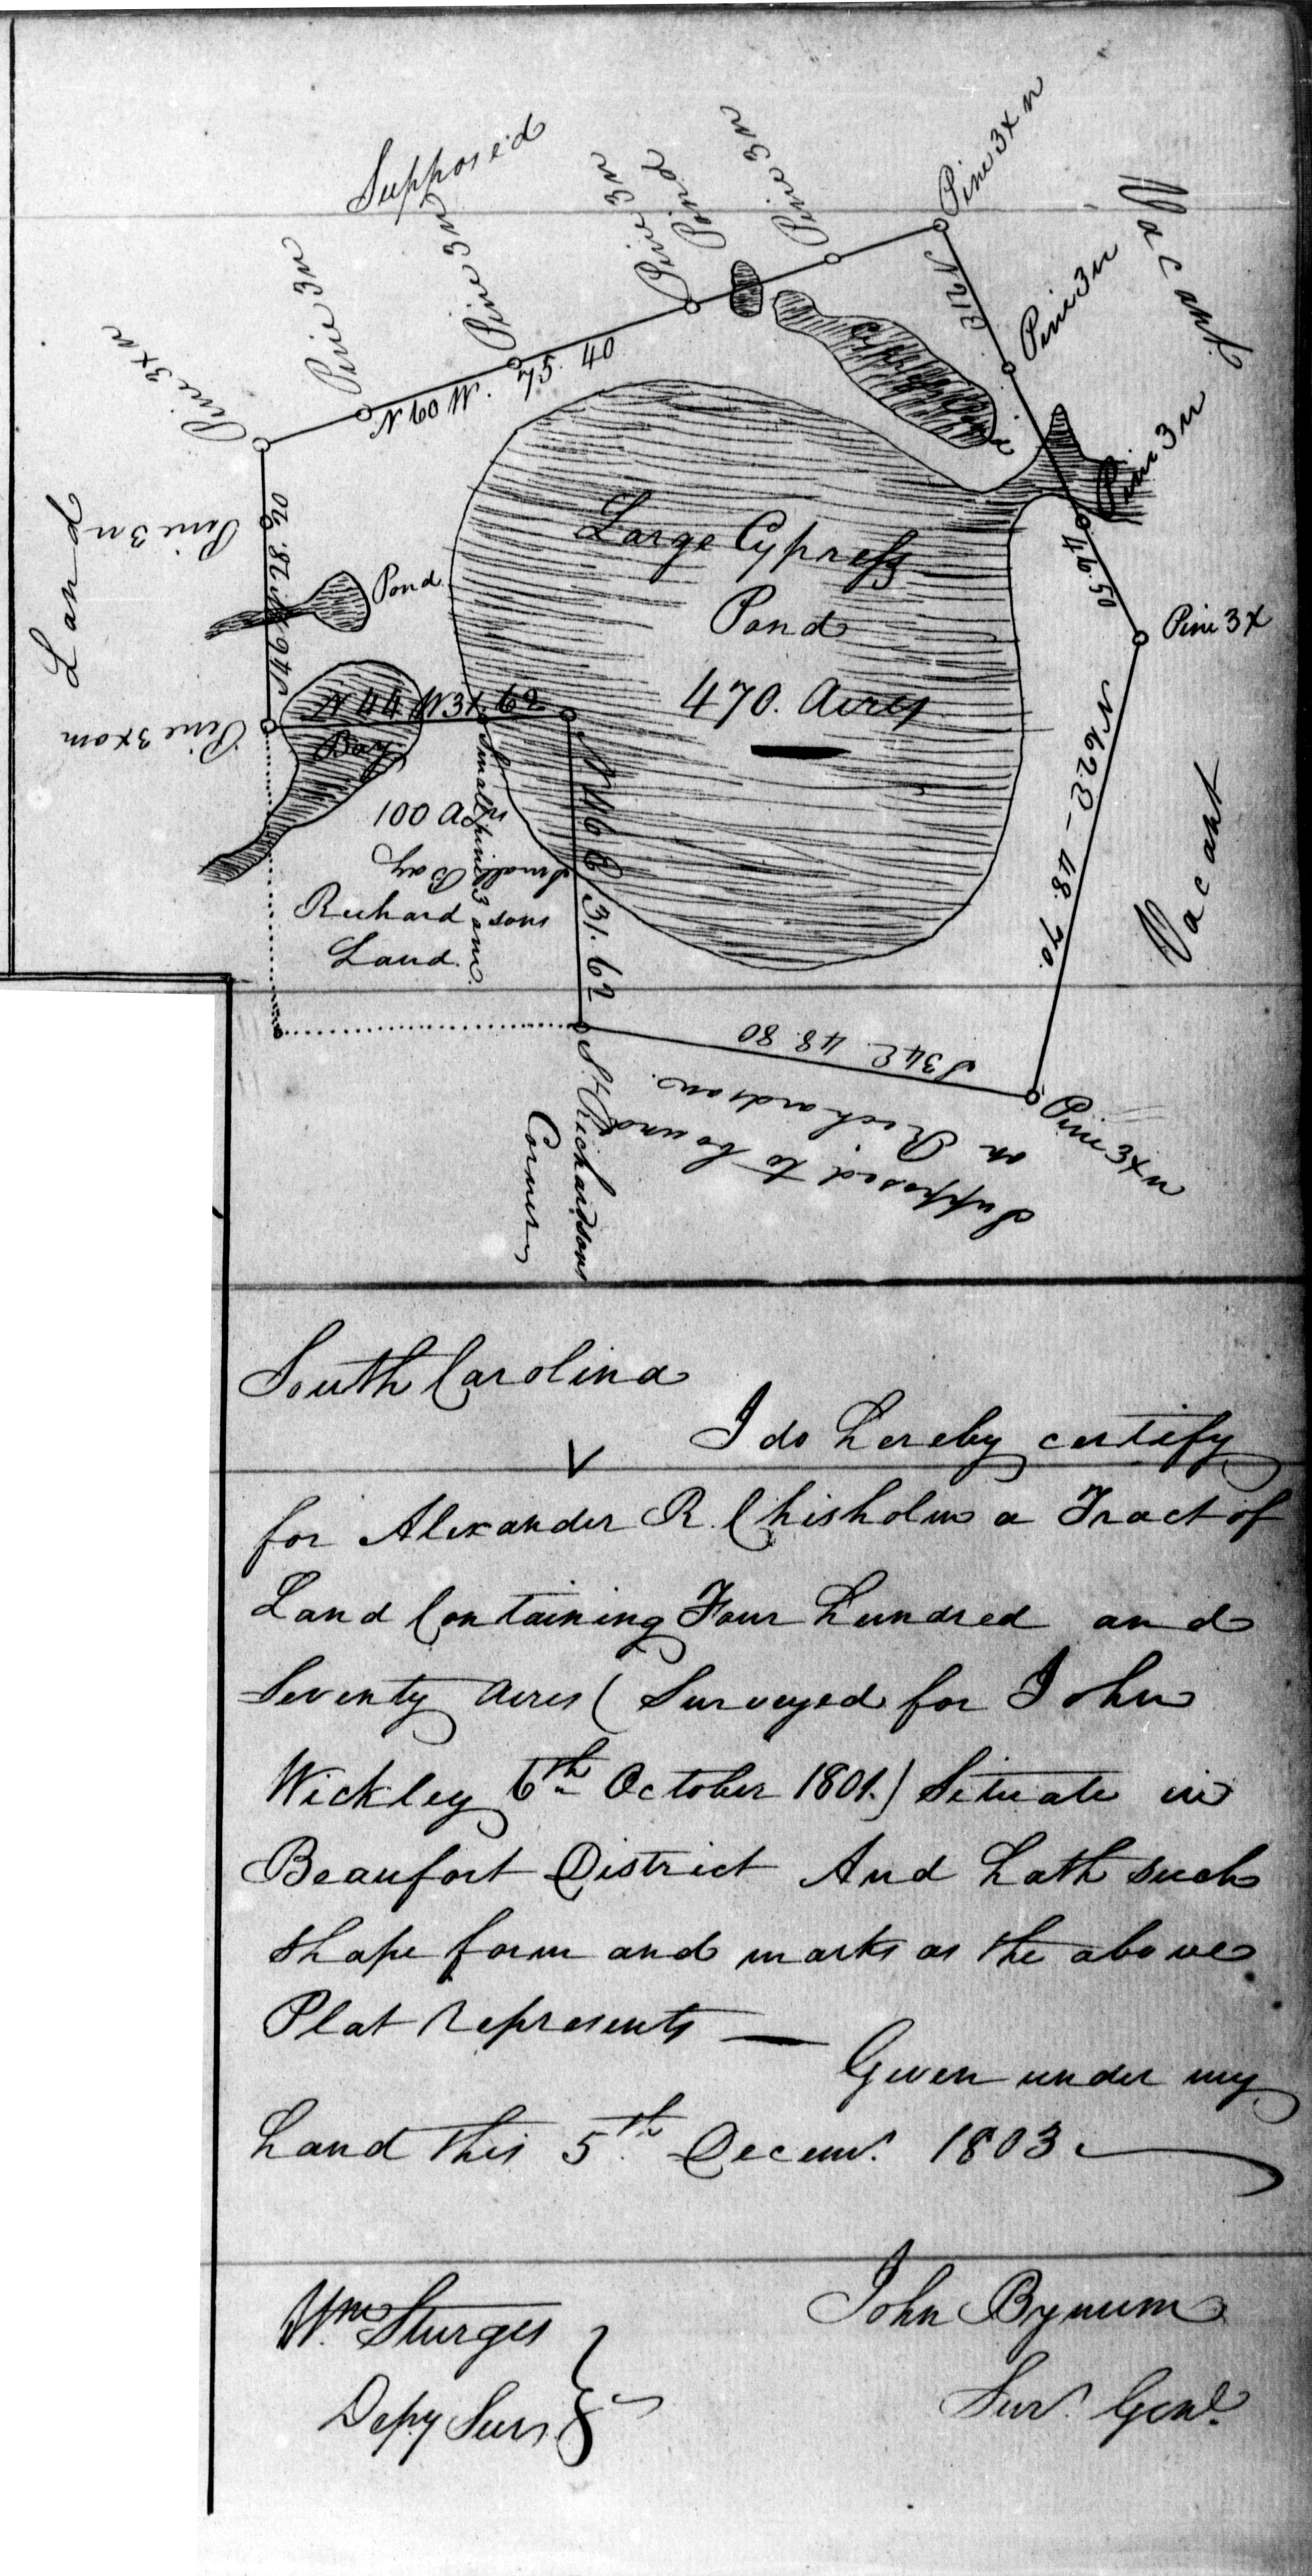 Supposed
Pine 3x n
Pine 3n
Pine 3n
Pine 3n
Pond
Pine 3n
Pine 3x n
Vacant
N 60 W. 75. 40
Pine 3n
Pine 3n
Land
Pine 3n
Pond
Large Cypress
Pond
470. Acres
Pine 3x
Pine 3xom
N 44 W 31 62
Bay
100 Acrs
Small Bay
Small pine 3 om.
Richardsons
Land.
N 46 E 31. 62
N 62 E - 48. 70.
Vacant
S 34 E. 48. 80
Pine 3x n
Supposed to bound
on Richardson.
St. Richardsons
Corner
South Carolina
I do hereby certify
for Alexander R. Chisholm a Tract of
Land Containing Four hundred and
Seventy Acres (Surveyed for John
Wickley 6th October 1801.) Situate in
Beaufort District And hath such
shape form and marks as the above
Plat represents —
Given under my
hand this 5th Decemr. 1803
Wm. Sturges
Depy Sur.
John Bynum
Sur. Genl.